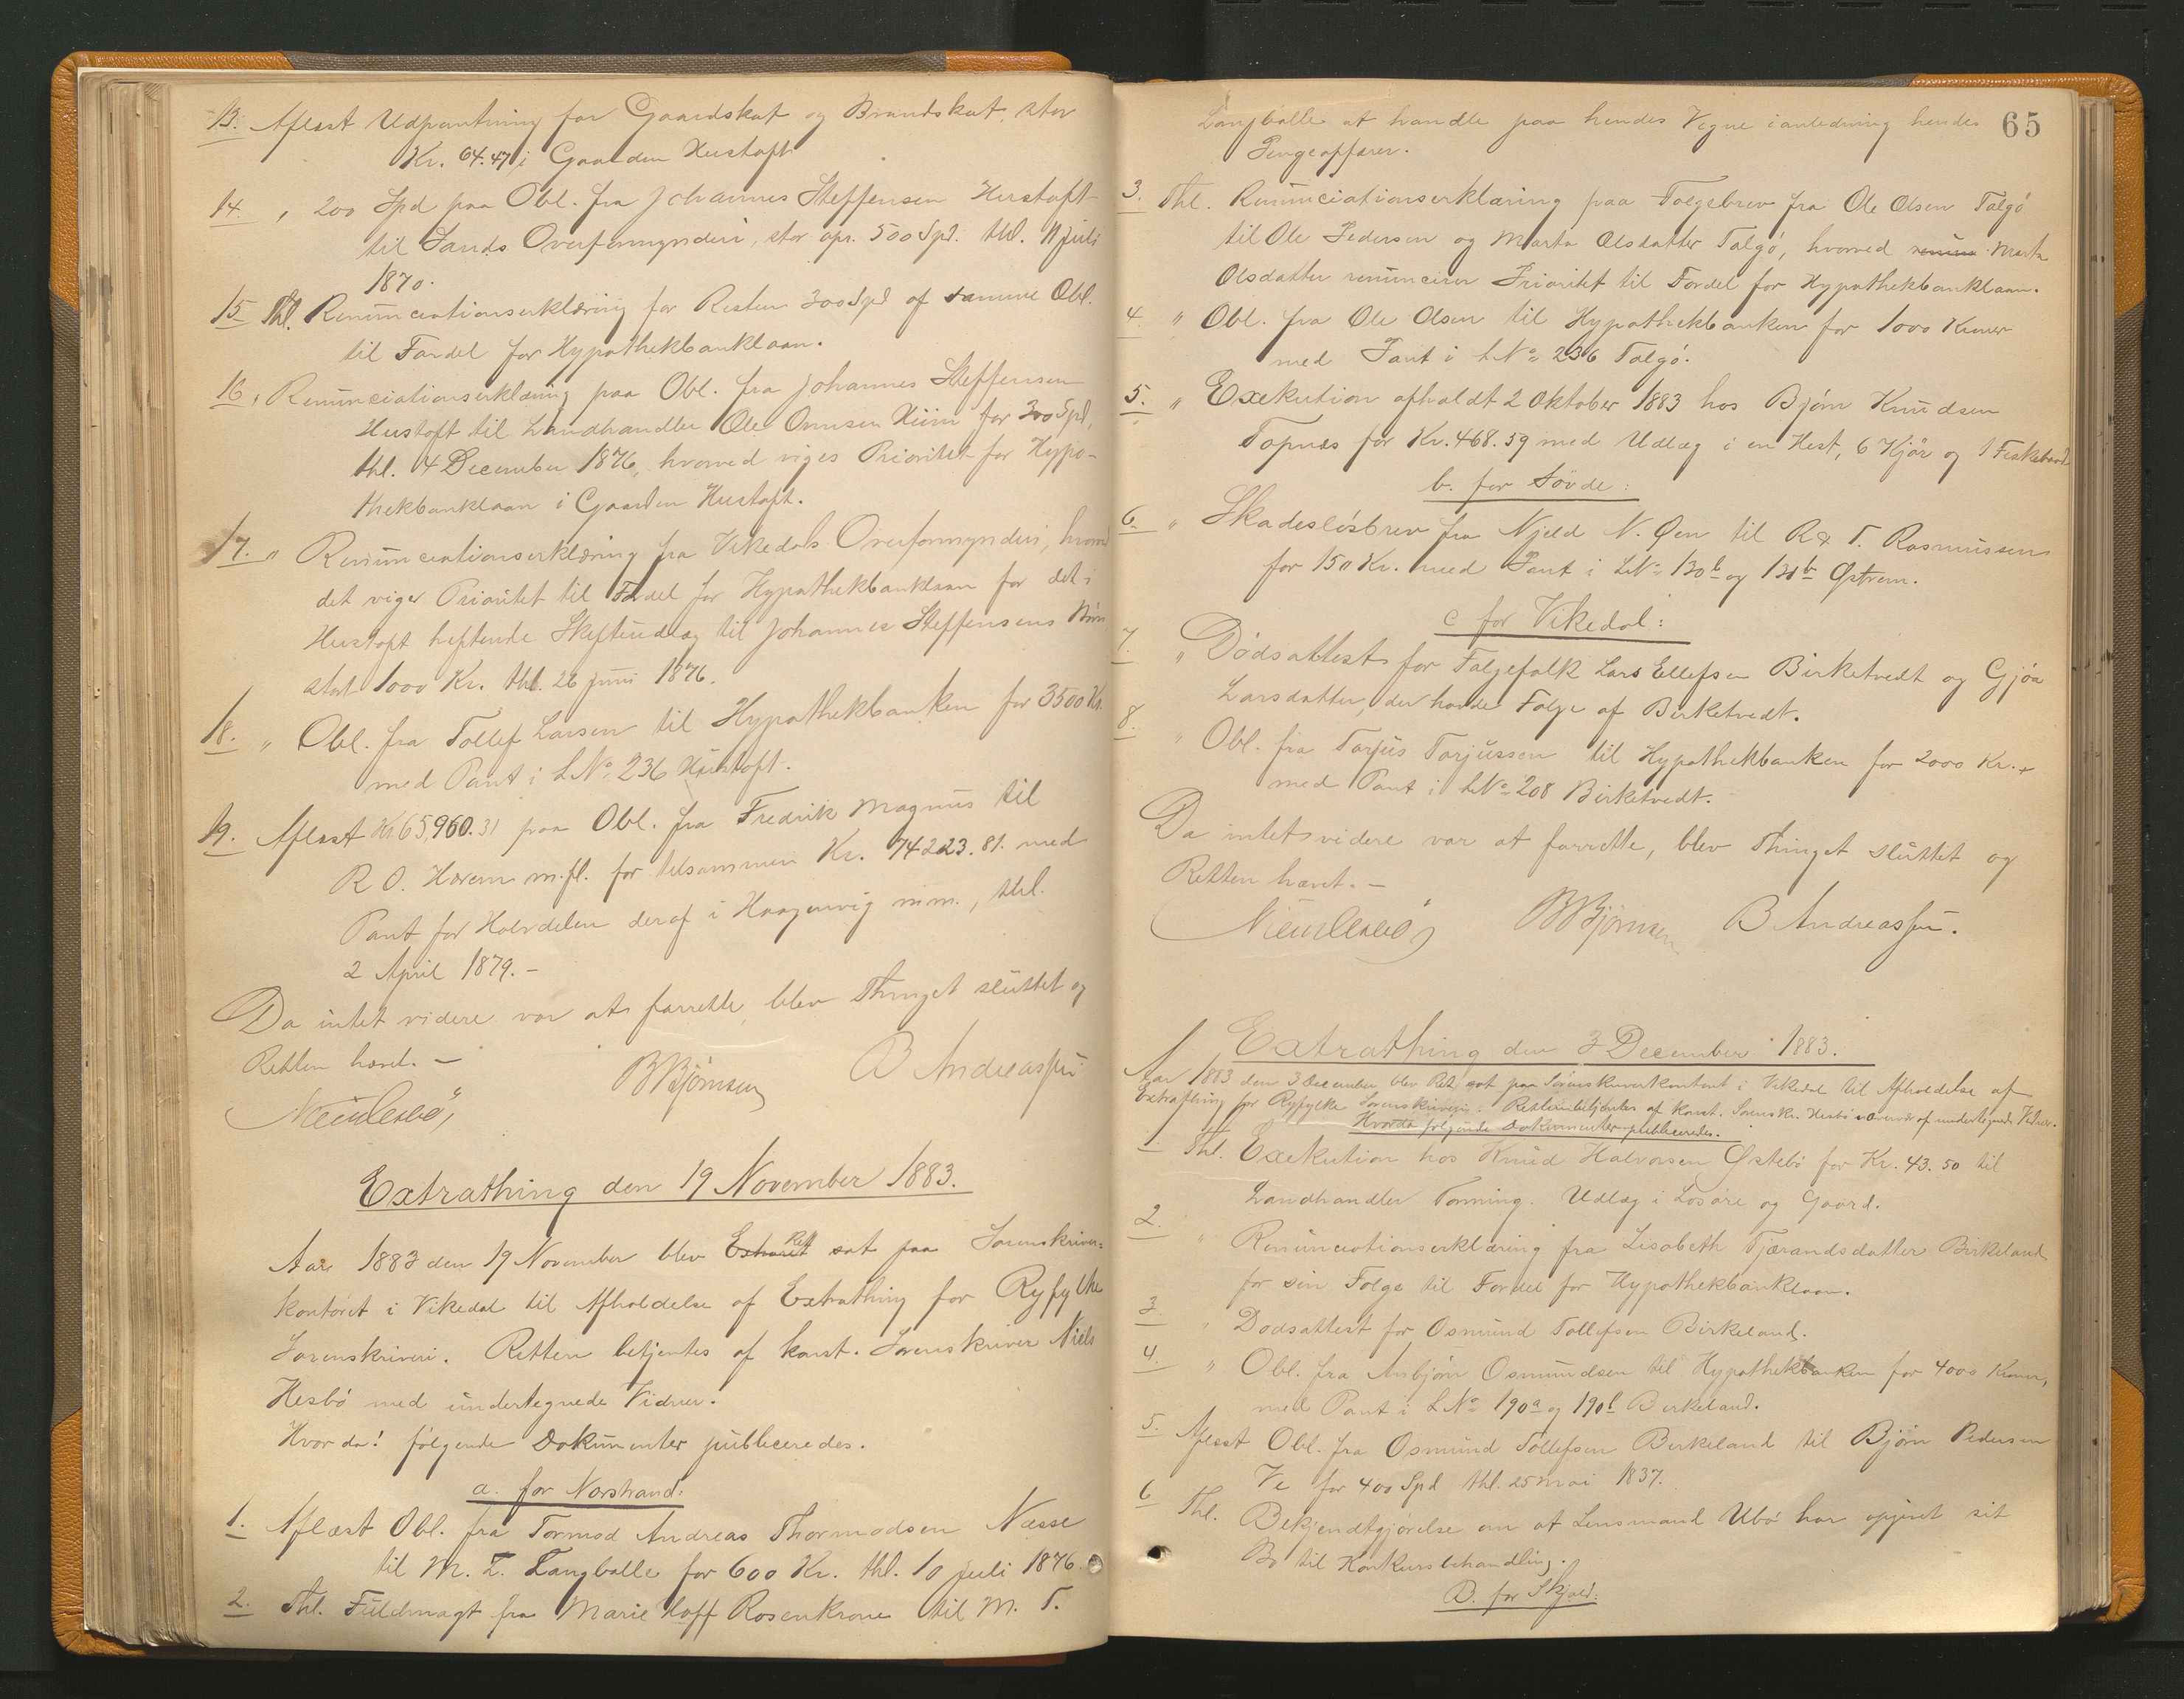 13. Aflæst Udpantning for Gaardskat og Brandskat, stor
Kr. 64.47 i Gaarden Hustoft
14. " 200 Spd paa Obl. fra Johannes Steffensen Hustoft
til Sands Overformynderi, stor opr. 500 Spd. thl. 11 juli
1870.
15 Thl. Renunciationserklæring for Resten 300 Spd af samme Obl.
til Fordel for Hypothekbanklaan.
16 " Renunciationserklæring paa Obl. fra Johannes Steffensen
Hustoft til Landhandler Ole Onnsen for 300 Spd,
thl. 4 December 1876, hvorved viges Prioritet for Hypo-
thekbanklaan i Gaarden Hustoft.
17. " Renunciationserklæring fra Vikedals Overformynderi, hvorved
det viger Prioritet til Fordel for Hypothekbanklaan for det i
Hustoft heftende Skifteudlæg til Johannes Steffensens Børn
stort 1000 Kr. thl. 26 juni 1876.
18. " Obl. fra Tollef Larsen til Hypothekbanken for 3500 Kr.
med Pant i LNo. 236 Hustoft.
19. Aflæst Kr. 65,960.31 paa Obl. fra Fredrik Magnus til
R O. Hærem m.fl. for tilsammen Kr. 74223.81. med
Pant for Halvdelen deraf i Haagenvig m.m., thl.
2 April 1879. –
Da intet videre var at forrette, blev Thinget sluttet og
Retten hævet. –
BBjörnsen B Andreassen
Extrathing den 19 November 1883.
Aar 1883 den 19 November blev Extraret Rett sat paa Sorenskriver-
kontoret i Vikedal til Afholdelse af Extrathing for Ryfylke
Sorenskriveri. Retten betjentes af const. Sorenskriver Niels
Hesbö med undertegnede Vidner.
Hvorda! følgende Dokumenter publiceredes.
a. for Nærstrand:
1. Aflæst Obl. fra Tormod Andreas Thormodsen Næsse
til M. T. Langballe for 600 Kr. thl. 10 juli 1876.
2. Thl. Fuldmagt fra Marie Hoff Rosenkrone til M. T.
65
Langballe at handle paa hendes Vegne i anledning hendes
Pengeaffærer.
3. Thl. Renunciationserklæring paa Folgebrev fra Ole Olsen Talgö
til Ole Pedersen og Marta Olsdatter Talgö, hvorved renun Marta
Olsdatter renuncierer Prioritet til Fordel for Hypothekbanklaan.
4. " Obl. fra Ole Olsen til Hypothekbanken for 1000 Kroner
med Pant i LNo. 236 Talgö.
5. " Exekution afholdt 2 Oktober 1883 hos Björn Knudsen
Topnæs for Kr. 468.59 med Udlæg i en Hest, 6 Kjör og 1 Fiskebaad
b. for Søvde:
6. " Skadeslösbrev fra Njeld N. Øen til R & T. Rasmussen
for 150 Kr. med Pant i LNo. 130b og 131b Østrem.
c for Vikedal:
7. " Dödsattest for Folgefolk Lars Ellefsen Birketvedt og Gjöa
Larsdatter, der havde Folge af Birketvedt.
8. " Obl. fra Torjus Torjussen til Hypothekbanken for 2000 Kr.
med Pant i LNo. 208 Birketvedt.
Da intet videre var at forrette, blev Thinget sluttet og
Retten hævet. –
BBjörnsen B Andreassen.
Extrathing den 3 December 1883.
Aar 1883 den 3 December blev Ret sat paa Sorenskriverkontoret i Vikedal til Afholdelse af
Extrathing for Ryfylke Sorenskriveri. Retten betjentes af const. Sorenskr. Hesbö overvær af undertegnede Vidner.
Hvorda følgende Dokumenter publiceredes.
1. Thl. Exekution hos Knud Halvorsen Østebö for Kr. 43.50 til
Landhandler Tonning. Udlæg i Losöre og Gaard.
2. " Renunciationserklæring fra Lisabeth Tjærandsdatter Birkeland
for sin Folge til Fordel for Hypothekbanklaan.
3. " Dødsattest for Osmund Tollefsen Birkeland.
4. " Obl. fra Anbjörn Osmundsen til Hypothekbanken for 4000 Kroner,
med Pant i LNo 190a og 190b Birkeland.
5. Aflæst Obl. fra Osmund Tollefsen Birkeland til Björn Pedersen
Ve for 400 Spd thl. 25 mai 1837.
6 Thl. Bekjendtgjörelse om at Lensmand Ubö har opgivet sit
Bo til Konkursbehandling.
D. for Skjold: